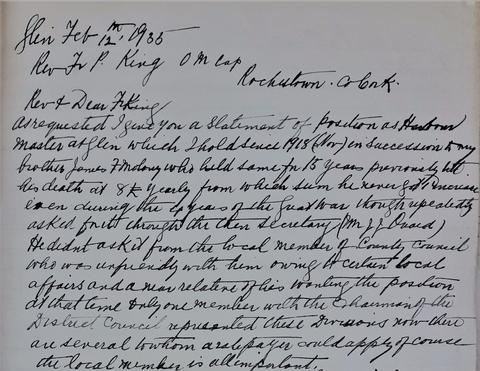 Glin Feb 12th, 1935
Rev Fr P. King O M Cap
Rochestown. Co Cork.
Rev & Dear Fr King
As requested I give you a Statement of position as Harbour
Master at Glin which I hold since 1918 (Nov) in succession to my
brother James F Moloney who held same for 15 years previously till
his death at 8£ yearly from which sum he never got increase
even during the 4 years of the Great War though repeatedly
asked for it through the then Secretary (Mr J J Quaid)
He didnt asked from the local member of County Council
who was unfriendly with him owing to certain local
affairs and a near relative of his wanting the position
at that time only one member with the Chairman of the
District Council represented these Divisions now there
are several to whom a ratepayer could apply of course
the local member is all important.